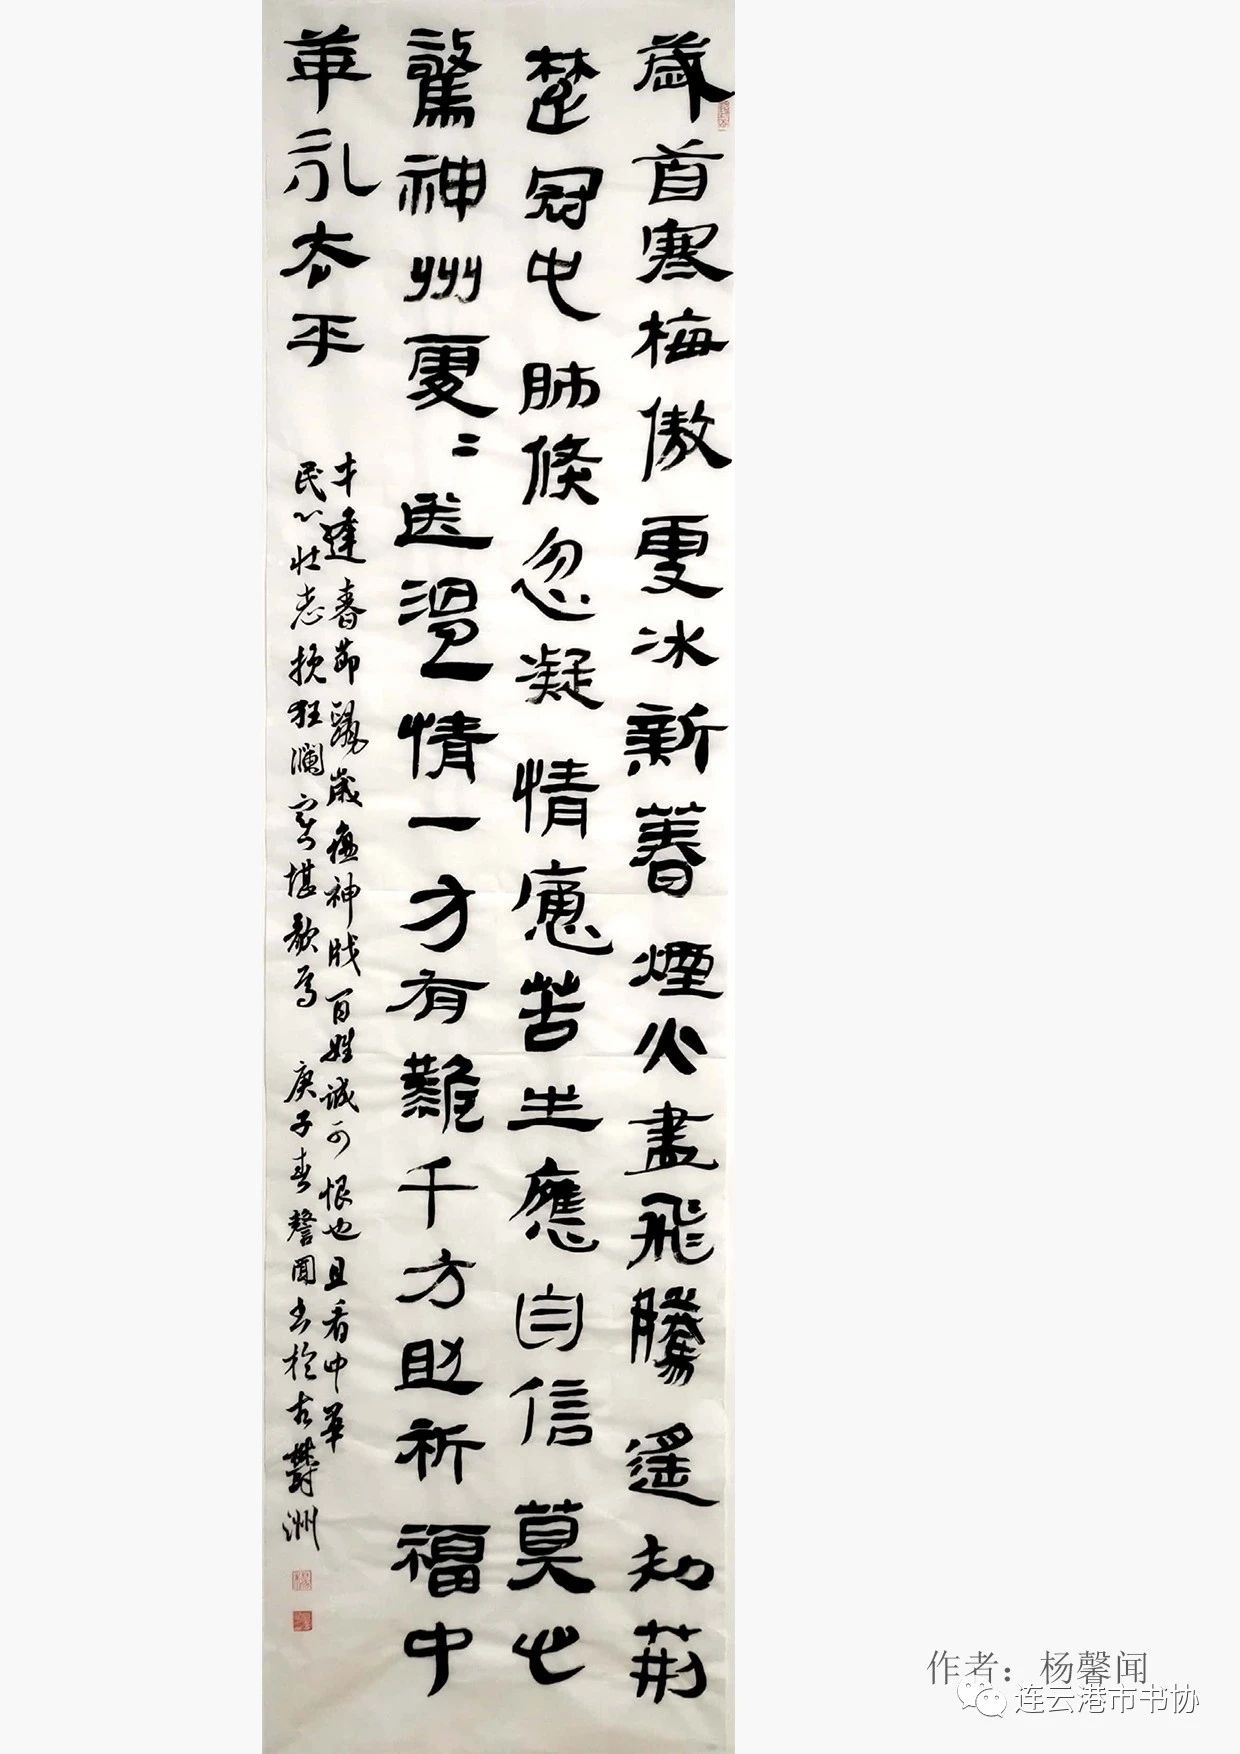 歲首寒梅傲更冰新萅煙火盡飛騰遙知荊
楚冠屯肺倏忽凝情慮苦生應自信莫心
驚神州處〻送溫情一方有難千方助祈福中
華永太平
才逢春節鼠歲瘟神戕百姓誠可恨也且看中華
民心壯志挽狂瀾實堪歌焉 庚子春馨聞書於古鬱洲
作者：杨馨闻
连云港市书协